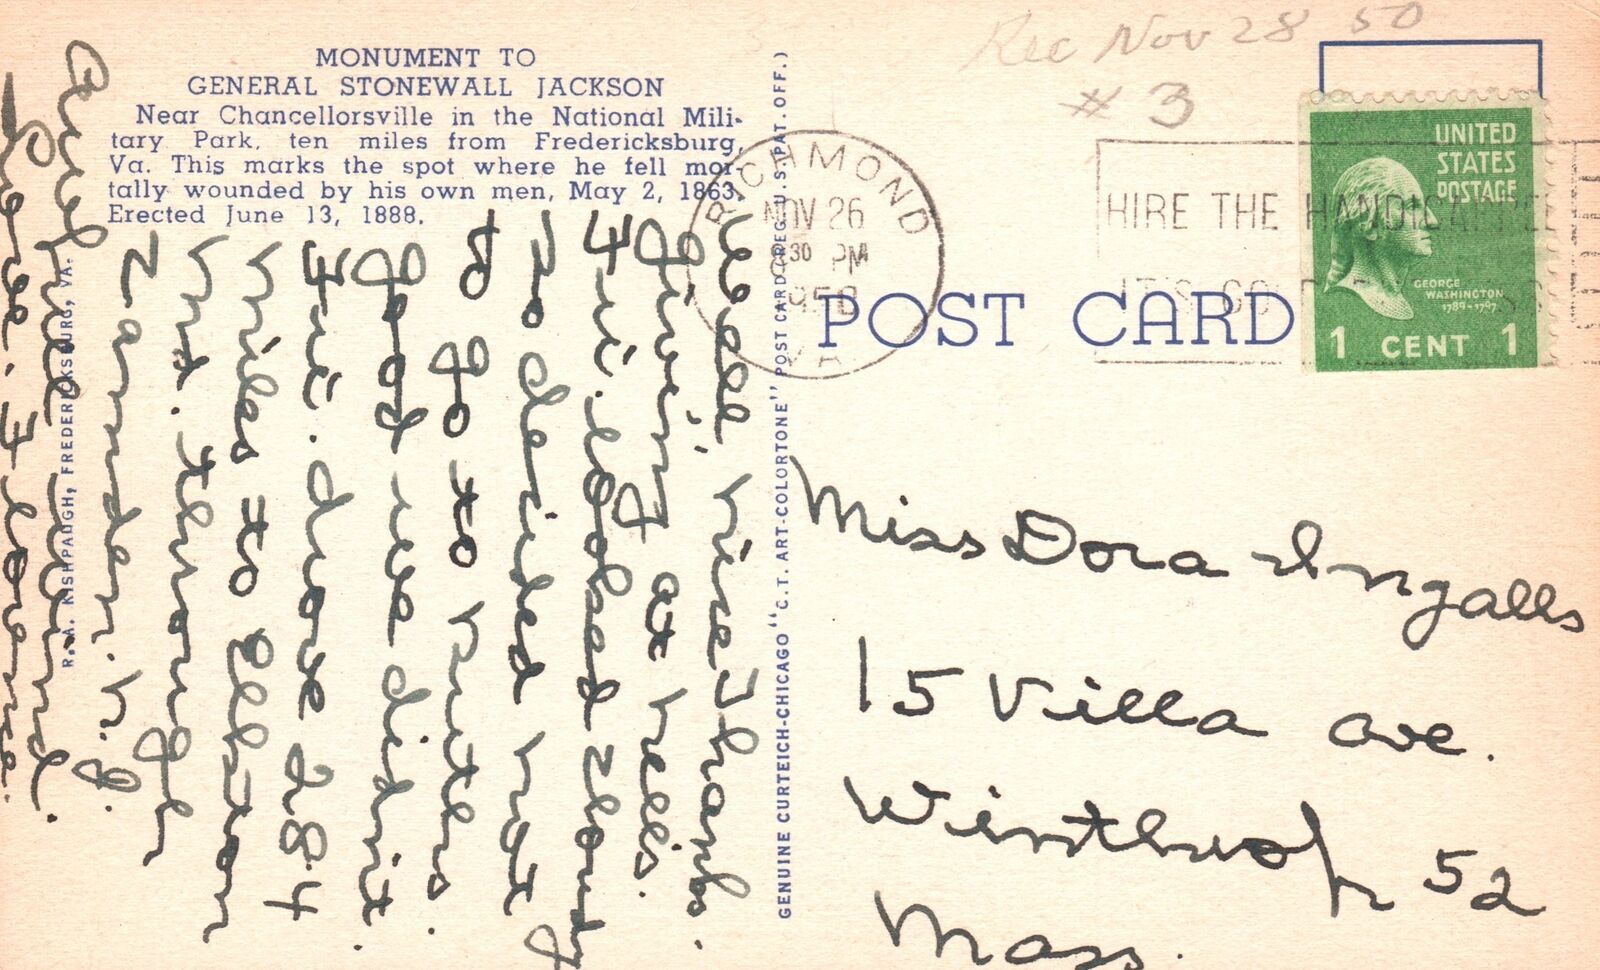 MONUMENT TO
GENERAL STONEWALL JACKSON
Near Chancellorsville in the National Mili-
tary Park, ten miles from Fredericksburg,
Va. This marks the spot where he fell mor-
tally wounded by his own men, May 2, 1863.
Erected June 13, 1888.
Well, nice Thanks-
giving at Nell's.
Fri. looked cloudy
so decided not
to go to Ruth's.
Good we didn't.
Fri. drove 284
miles to Elkton
Md. through
N.J.
wind.
Love. Florence.
R. A. KISHPAUGH, FREDERICKSBURG, VA.
GENUINE CURTEICH-CHICAGO "C. T. ART-COLORTONE" POST CARD (REG. U. S. PAT. OFF.)
Rec Nov 28 50
# 3
RICHMOND
NOV 26
30 PM
1950
VA.
HIRE THE HANDICAPPED
IT'S GOOD
UNITED
STATES
POSTAGE
GEORGE
WASHINGTON
1789-1797
1 CENT 1
POST CARD
Miss Dora Ingalls
15 Villa Ave.
Winthrop 52
Mass.